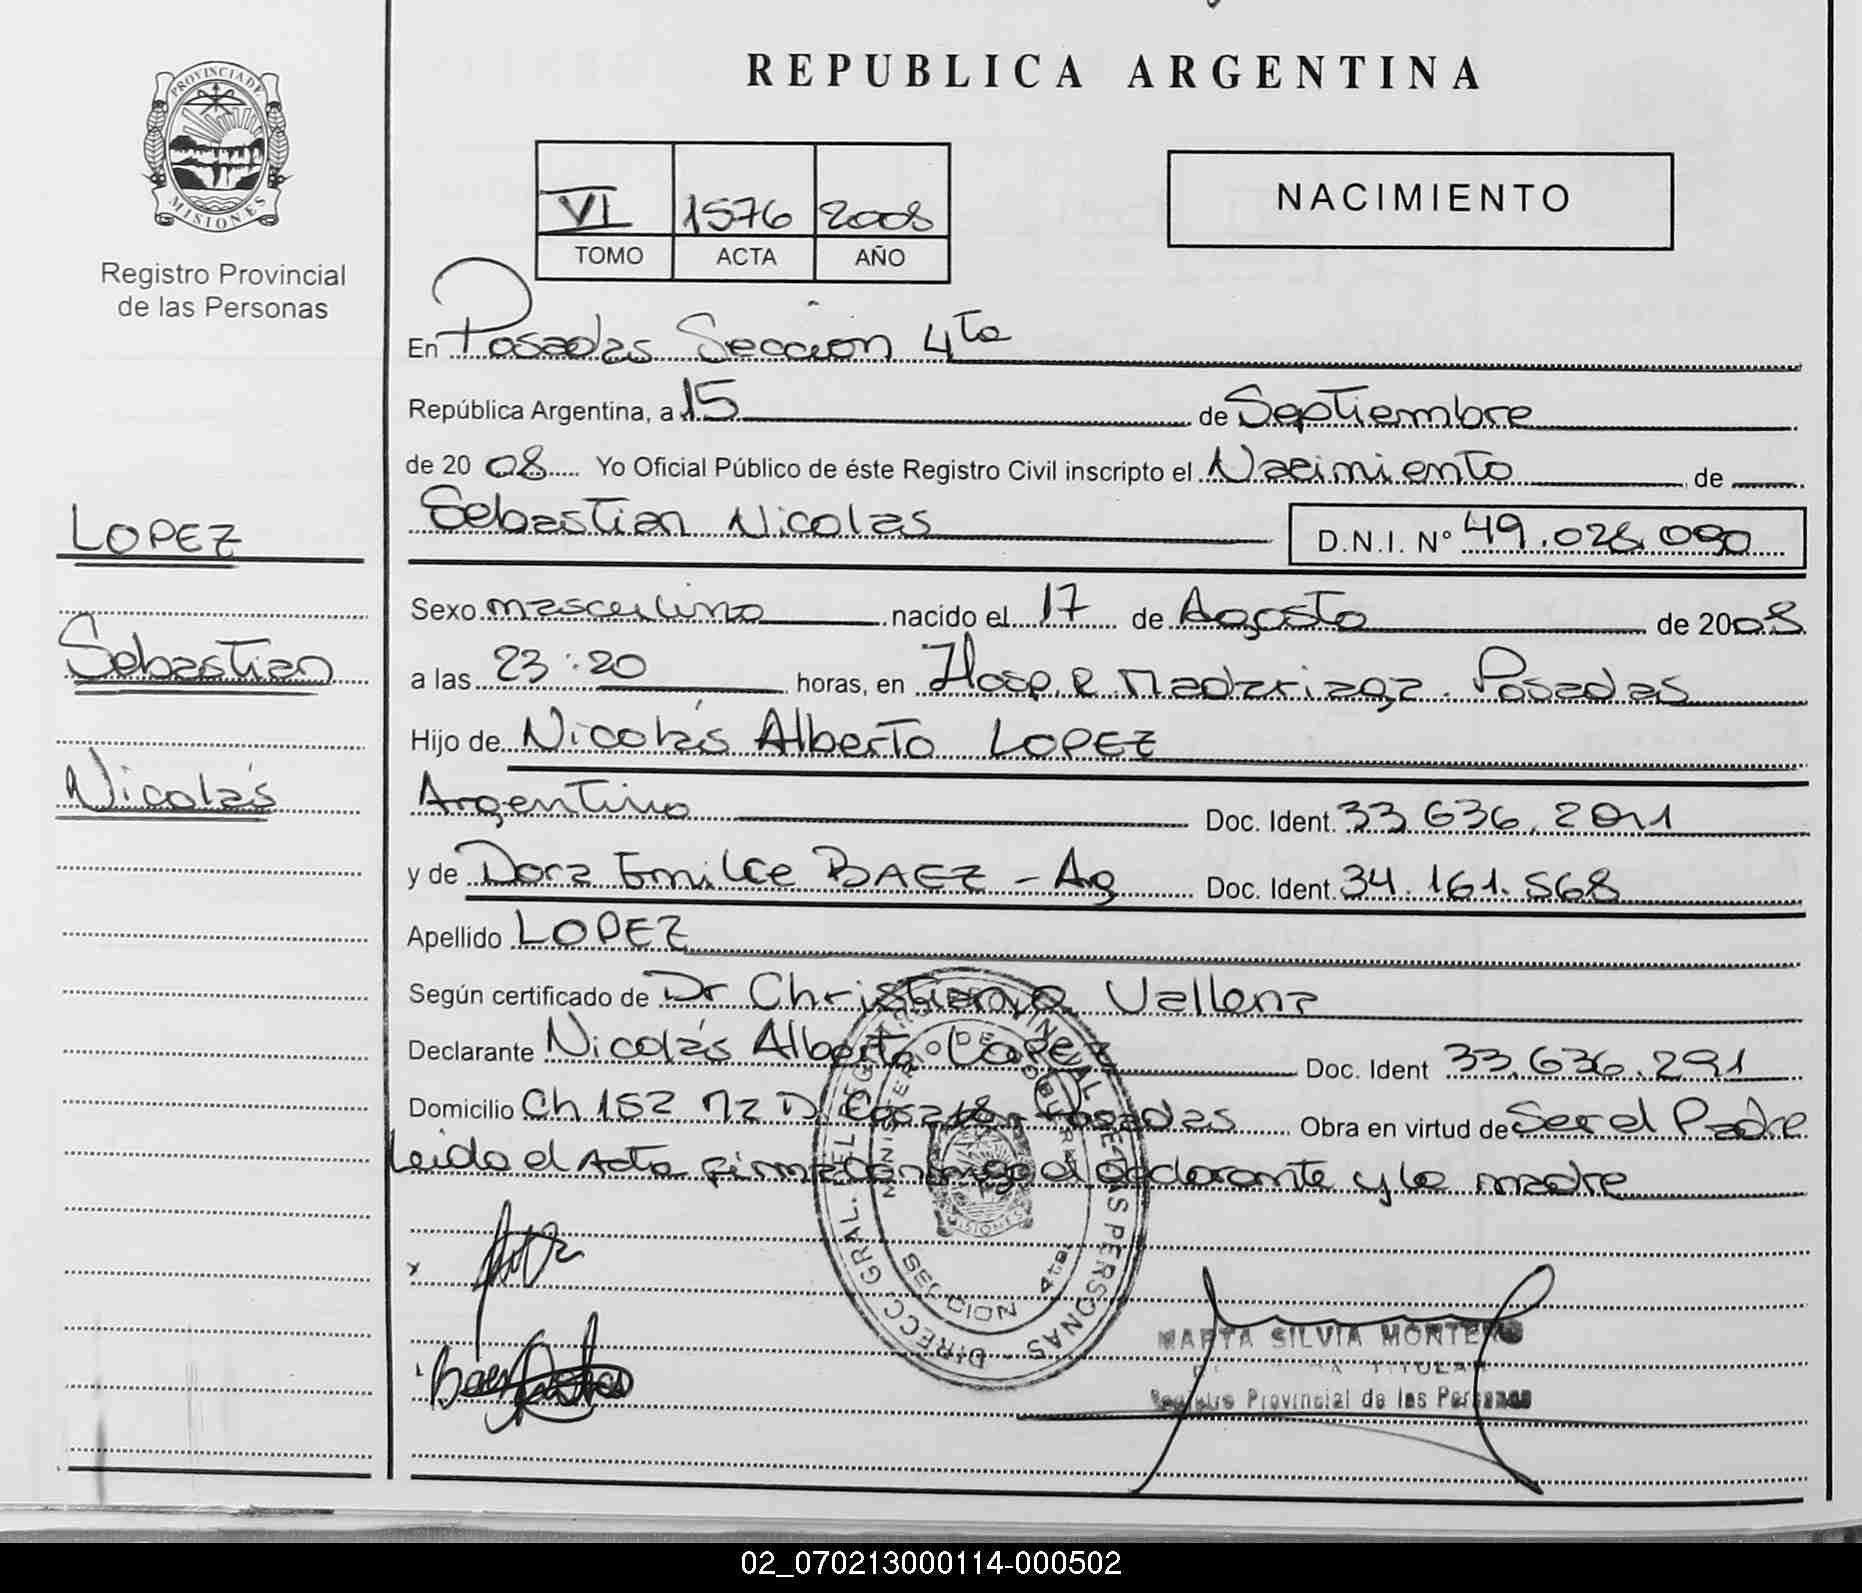 PROVINCIA DE
MISIONES
Registro Provincial
de las Personas
LOPEZ
Sebastian
Nicolás
REPUBLICA ARGENTINA
VI 1576 2008
TOMO ACTA AÑO
NACIMIENTO
En Posadas Seccion 4ta
República Argentina, a 15 de Septiembre
de 20 08 Yo Oficial Público de éste Registro Civil inscripto el Nacimiento de
Sebastian Nicolas D.N.I. Nº 49.028.090
Sexo masculino nacido el 17 de Agosto de 2008
a las 23:20 horas, en Hosp. R. Madariaga. Posadas
Hijo de Nicolás Alberto LOPEZ
Argentino Doc. Ident. 33.636.291
y de Dora Emilce BAEZ - Ag Doc. Ident. 34.161.568
Apellido LOPEZ
Según certificado de Dr Christian Vallena
Declarante Nicolás Alberto Lopez Doc. Ident 33.636.291
Domicilio Ch 152 Mz D Posadas Obra en virtud de Ser el Padre
Leido el Acta firma conmigo el declarante y la madre
DIRECC. GRAL. DEL REGISTRO PROVINCIAL DE LAS PERSONAS
MINISTERIO DE GOBIERNO
MISIONES
SECCION 4ta
MARTA SILVIA MONTERO
TITULAR
Registro Provincial de las Personas
02_070213000114-000502